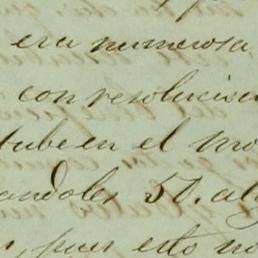 era numerosa
con resolucion
tube en el mo
andoles 50. a
pues esto no